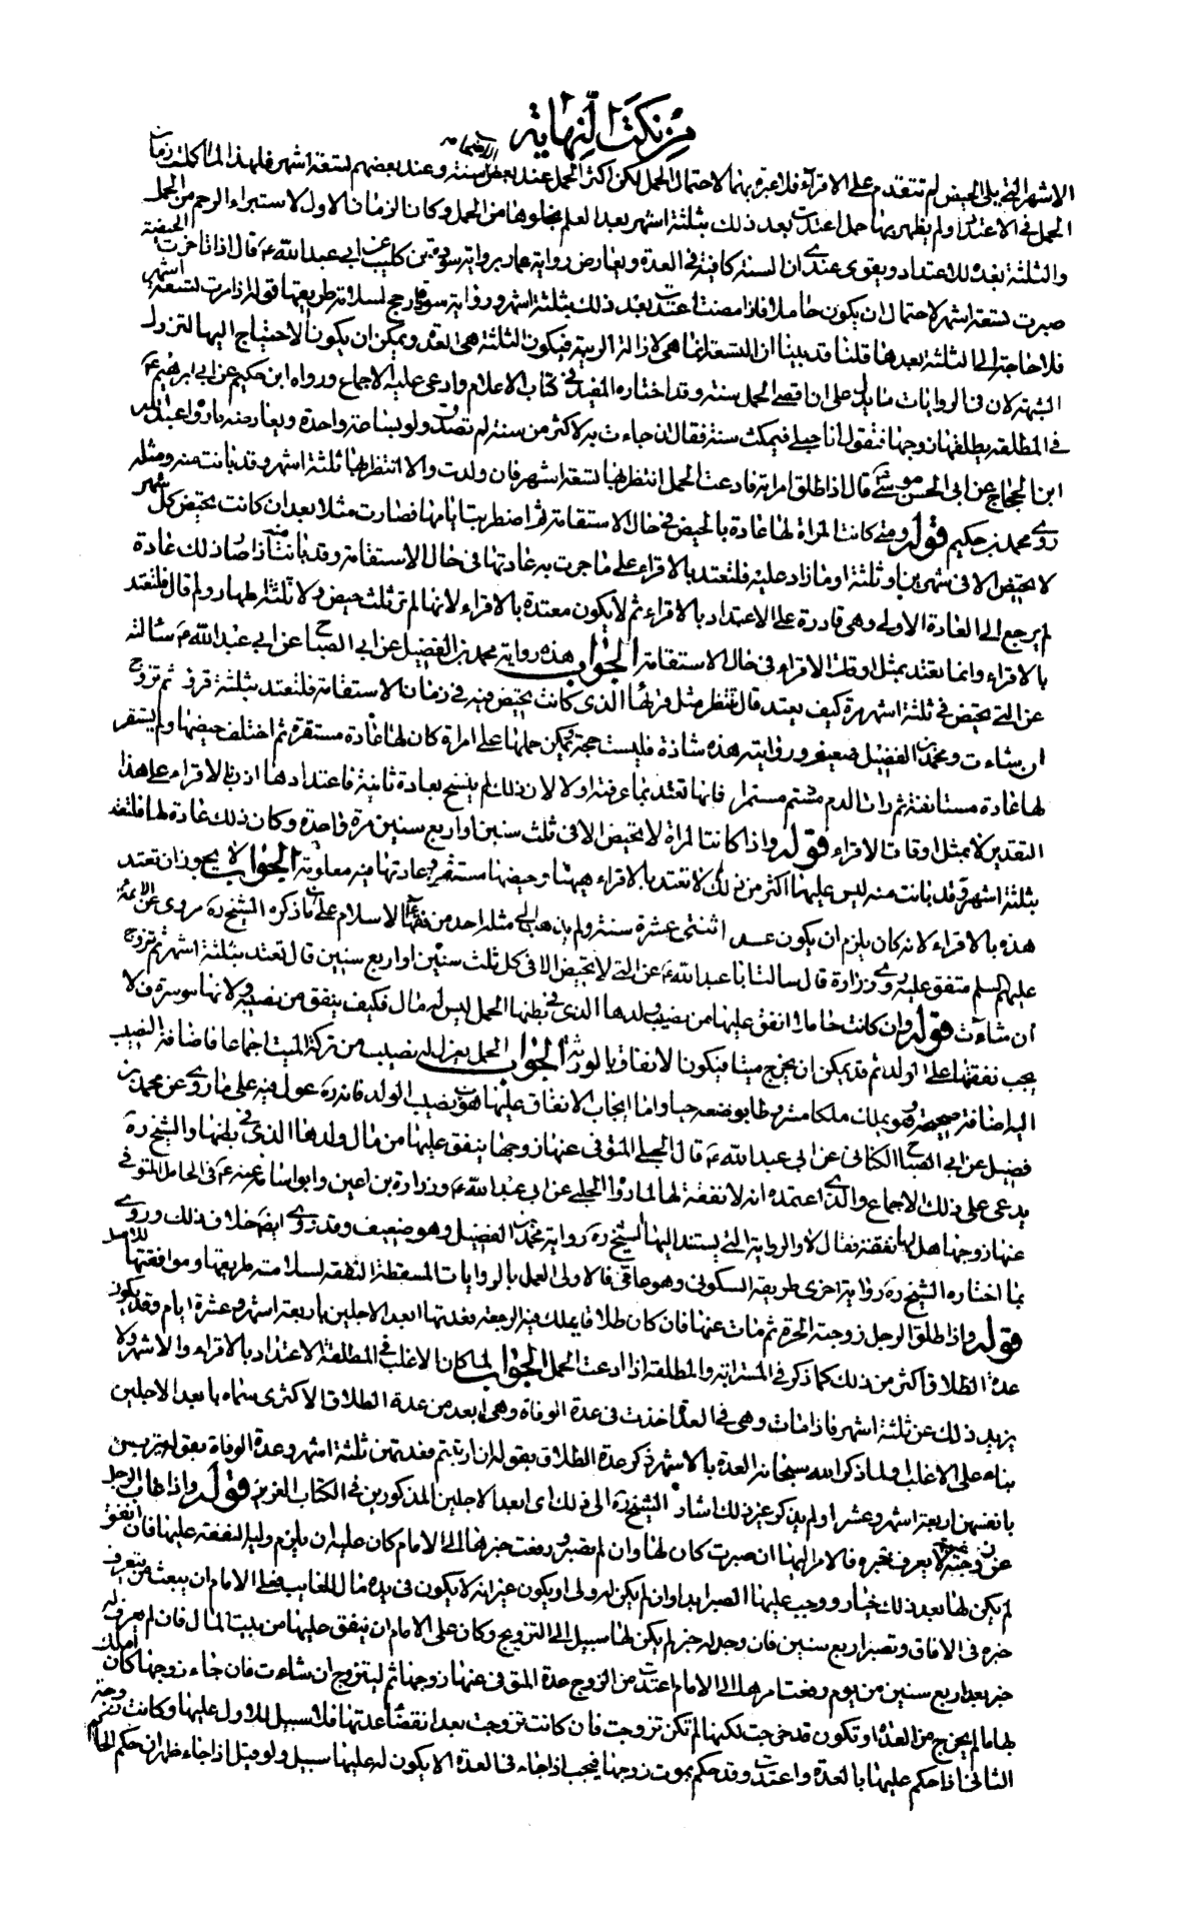 من نكت النهاية
الاشهر التي يلي الحيض لم تتقدم على الاقراء فلا عبرة بهما لاحتمال الحمل لكن اكثر الحمل عند بعض الاصحاب سنة وعند بعضهم تسعة اشهر فلهذا لما كملت زمان
الحمل في الاعتداد ولم يظهر بها حمل اعتدت بعد ذلك بثلثة اشهر بعد العلم بخلوها من الحمل وكان الزمان الاول لاستبراء الرحم من الحمل
والثلثة بعده للاعتداد ويقوى عندي ان السنة كافية في العدة ويعارض رواية عمار برواية سورة بن كليب عن ابي عبد الله ع قال اذا تاخرت الحيضة
صبرت تسعة اشهر لاحتمال ان يكون حاملا فاذا مضت اعتدت بعد ذلك بثلثة اشهر ورواية سورة ارجح لسلامة طريقها قوله اذا مرت تسعة اشهر
فلا حاجة الى الثلثة بعدها قلنا قد بينا ان التسعة انما هي لازالة الريبة فيكون الثلثة هي العدة ويمكن ان يكون الاحتياج اليها لتزول
الشبهة لان في الروايات ما يدل على ان اقصى الحمل سنة وقد اختاره المفيد في كتاب الاعلام وادعى عليه الاجماع ورواه ابن حكيم عن ابي ابرهيم ع
في المطلقة يطلقها زوجها فتقول انا حبلى فيمكث سنة فقال ان جاءت به لاكثر من سنة لم تصدق ولو بساعة واحدة ويعارضه ما رواه عبد الرحمن
ابن الحجاج عن ابي الحسن موسى ع قال اذا طلق امراته فادعت الحمل انتظر بها تسعة اشهر فان ولدت والا انتظر بها ثلثة اشهر وقد بانت منه ومثله
روى محمد بن حكيم قوله ومتى كانت المراة لها عادة بالحيض في حال الاستقامة ثم اضطربت ايامها فصارت مثلا بعد ان كانت تحيض كل شهر
لا تحيض الا في شهرين او ثلثة او ما زاد عليه فلتعتد بالاقراء على ما جرت به عادتها في حال الاستقامة وقد بانت منه اذا صار ذلك عادة
لم يرجع الى العادة الاولى وهي قادرة على الاعتداد بالاقراء ثم لا يكون معتدة بالاقراء لانها لم تر ثلث حيض ولا ثلثة اطهار ولم قال فلتعتد
بالاقراء وانما تعتد بمثل اوقات الاقراء في حال الاستقامة الجواب هذه رواية محمد بن الفضيل عن ابي الصباح عن ابي عبد الله ع سالته
عن التي تحيض في ثلثة اشهر مرة كيف تعتد قال تنتظر مثل قرئها الذي كانت تحيض فيه في زمان الاستقامة فلتعتد بثلثة قروء ثم تزوج
ان شاءت ومحمد بن الفضيل ضعيف وروايته هذه شاذة فليست حجة ويمكن حملها على امراة كان لها عادة مستقرة ثم اختلف حيضها ولم يستقر
لها عادة مستانفة ثم رات الدم مستمرا فانها تعتد بما عرفته اولا لان ذلك لم ينسخ بعادة ثانية فاعتدادها اذن بالاقراء على هذا
التقدير لا بمثل اوقات الاقراء قوله واذا كانت المراة لا تحيض الا في ثلث سنين او اربع سنين مرة واحدة وكان ذلك عادة لها فلتعتد
بثلثة اشهر وقد بانت منه ليس عليها اكثر من ذلك لم لا تعتد بالاقراء ههنا وحيضها مستقر وعادتها فيه معلومة الجواب لا يجوز ان تعتد
هذه بالاقراء لانه كان يلزم ان يكون عدتها اثنتى عشرة سنة ولم يذهب الى مثله احد من فقهاء الاسلام على ان ما ذكره الشيخ ره مروى عن الائمة
عليهم السلم متفق عليه روى زرارة قال سالت ابا عبد الله ع عن التي لا تحيض الا في كل ثلث سنين او اربع سنين قال تعتد بثلثة اشهر ثم تزوج
ان شاءت قوله وان كانت حاملا انفق عليها من نصيب ولدها الذي في بطنها الحمل ليس له مال فكيف ينفق من نصيبه ولانها موسرة لا
يجب نفقتها على اولد ثم قد يمكن ان يخرج ميتا فيكون الانفاق بالورثة الجواب الحمل يعزل له نصيب من تركة الميت اجماعا فاضافة النصيب
اليه اضافة صحيحة وهو يملك ملكا مشروطا بوضعه حيا واما ايجاب الانفاق عليها من نصيب الولد فانه ره عول فيه على ما روى عن محمد بن
فضيل عن ابي الصباح الكناني عن ابي عبد الله ع قال الحبلى المتوفى عنها زوجها ينفق عليها من مال ولدها الذي في بطنها والشيخ ره
يدعى على ذلك الاجماع والذي اعتمده انه لا نفقة لها لما رواه الحلبي عن ابي عبد الله ع وزرارة بن اعين وابو اسامة عنه ع في الحامل المتوفى
عنها زوجها هل لها نفقة فقال لا والرواية التي يستند اليها الشيخ ره رواية محمد بن الفضيل وهو ضعيف وقد روى ايضا خلاف ذلك وروى
بما اختاره الشيخ ره رواية اخرى طريقها السكوني وهو عامي فالاولى العمل بالروايات المسقطة للنفقة لسلامة طريقها وموافقتها للاصل
قوله واذا طلق الرجل زوجته الحرة ثم مات عنها فان كان طلاقا يملك فيه الرجعة فعدتها ابعد الاجلين باربعة اشهر وعشرة ايام وقد يكون
عدة الطلاق اكثر من ذلك كما ذكر في المسترابة والمطلقة اذا ادعت الحمل الجواب لما كان الاغلب في المطلقة الاعتداد بالاقراء والاشهر ولا
يزيد ذلك عن ثلثة اشهر فاذا مات وهي في العدة اخذت في عدة الوفاة وهي ابعد من عدة الطلاق الاكثرى سماه بابعد الاجلين
بناء على الاغلب ولما ذكر الله سبحانه العدة بالاشهر ذكر عدة الطلاق بقوله ان ارتبتم فعدتهن ثلثة اشهر وعدة الوفاة بقوله يتربصن
بانفسهن اربعة اشهر وعشرا ولم يذكر غير ذلك اشار الشيخ ره الى ذلك اى ابعد الاجلين المذكورين في الكتاب العزيز قوله واذا غاب الرجل
عن زوجته لا يعرف خبره فالامر اليها ان صبرت كان لها وان لم تصبر ورفعت خبرها الى الامام كان عليه ان يلزم وليه النفقة عليها فان انفق
لم يكن لها بعد ذلك خيار ووجب عليها الصبر ابدا وان لم يكن له ولى او يكون غير انه لا يكون في يده مال للغايب فعلى الامام ان يبعث من يتعرف
خبره في الافاق وتصبر اربع سنين فان وجد له خبر لم يكن لها سبيل الى التزويج وكان على الامام ان ينفق عليها من بيت المال فان لم يعرف له
خبر بعد اربع سنين من يوم رفعت امرها الى الامام اعتدت من الزوج عدة المتوفى عنها زوجها ثم لتتزوج ان شاءت فان جاء زوجها كان املك
بها ما لم يخرج من العدة او تكون قد خرجت لكنها لم تكن تزوجت فان كانت تزوجت بعد انقضاء عدتها فلا سبيل للاول عليها وكانت زوجة
الثاني اذا حكم عليها بالعدة واعتدت وقد حكم بموت زوجها فيجب اذا جاء في العدة الا يكون له عليها سبيل ولو قيل اذا جاء ظهر ان حكم الحاكم